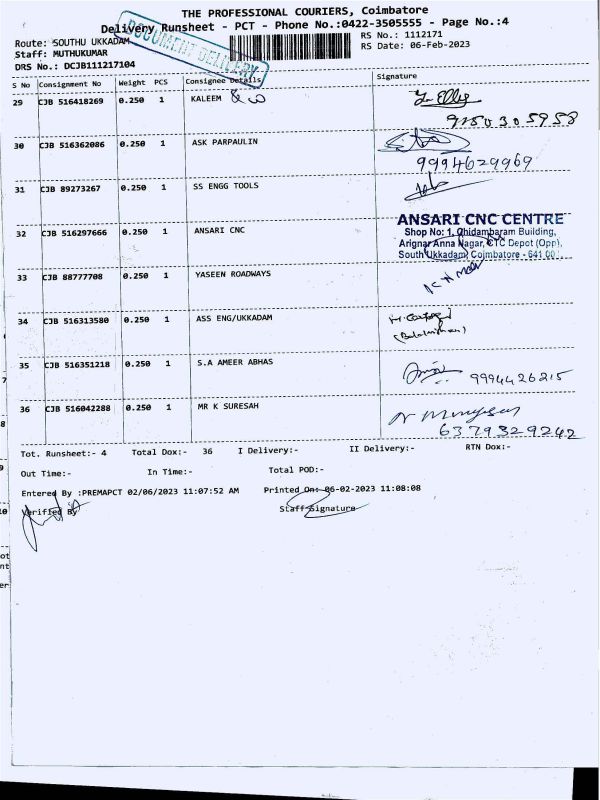 THE PROFESSIONAL COURIERS, Coimbatore
Delivery Runsheet - PCT - Phone No.:0422-3505555 - Page No.:4
DOCUMENT DELIVERY
Route: SOUTHU UKKADAM
RS No.: 1112171
Staff: MUTHUKUMAR
RS Date: 06-Feb-2023
DRS No.: DCJB111217104
S No Consignment No Weight PCS Consignee Details Signature
29 CJB 516418269 0.250 1 KALEEM & co
9150305958
30 CJB 516362086 0.250 1 ASK PARPAULIN
9994629969
31 CJB 89273267 0.250 1 SS ENGG TOOLS
32 CJB 516297666 0.250 1 ANSARI CNC
ANSARI CNC CENTRE
Shop No: 1, Chidambaram Building,
Arignar Anna Nagar, CTC Depot (Opp),
South Ukkadam, Coimbatore - 641 00
33 CJB 88777708 0.250 1 YASEEN ROADWAYS
34 CJB 516313580 0.250 1 ASS ENG/UKKADAM
35 CJB 516351218 0.250 1 S.A AMEER ABHAS
9994426215
36 CJB 516042288 0.250 1 MR K SURESAH
6379329242
Tot. Runsheet:- 4 Total Dox:- 36 I Delivery:- II Delivery:- RTN Dox:-
Out Time:- In Time:- Total POD:-
Entered By :PREMAPCT 02/06/2023 11:07:52 AM Printed On: 06-02-2023 11:08:08
Verified By Staff Signature